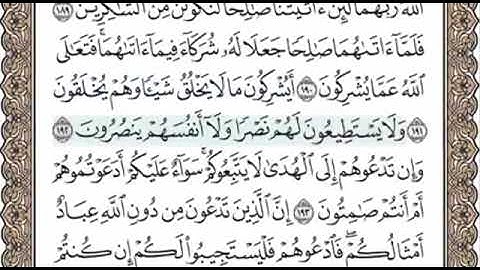 ٱللَّهَ رَبَّهُمَا لَئِنْ ءَاتَيْتَنَا صَٰلِحًا لَّنَكُونَنَّ مِنَ ٱلشَّٰكِرِينَ ١٨٩
فَلَمَّآ ءَاتَىٰهُمَا صَٰلِحًا جَعَلَا لَهُۥ شُرَكَآءَ فِيمَآ ءَاتَىٰهُمَا ۚ فَتَعَٰلَى
ٱللَّهُ عَمَّا يُشْرِكُونَ ١٩٠ أَيُشْرِكُونَ مَا لَا يَخْلُقُ شَيْـًٔا وَهُمْ يُخْلَقُونَ
١٩١ وَلَا يَسْتَطِيعُونَ لَهُمْ نَصْرًا وَلَآ أَنفُسَهُمْ يَنصُرُونَ ١٩٢
وَإِن تَدْعُوهُمْ إِلَى ٱلْهُدَىٰ لَا يَتَّبِعُوكُمْ ۚ سَوَآءٌ عَلَيْكُمْ أَدَعَوْتُمُوهُمْ
أَمْ أَنتُمْ صَٰمِتُونَ ١٩٣ إِنَّ ٱلَّذِينَ تَدْعُونَ مِن دُونِ ٱللَّهِ عِبَادٌ
أَمْثَالُكُمْ ۖ فَٱدْعُوهُمْ فَلْيَسْتَجِيبُوا۟ لَكُمْ إِن كُنتُمْ